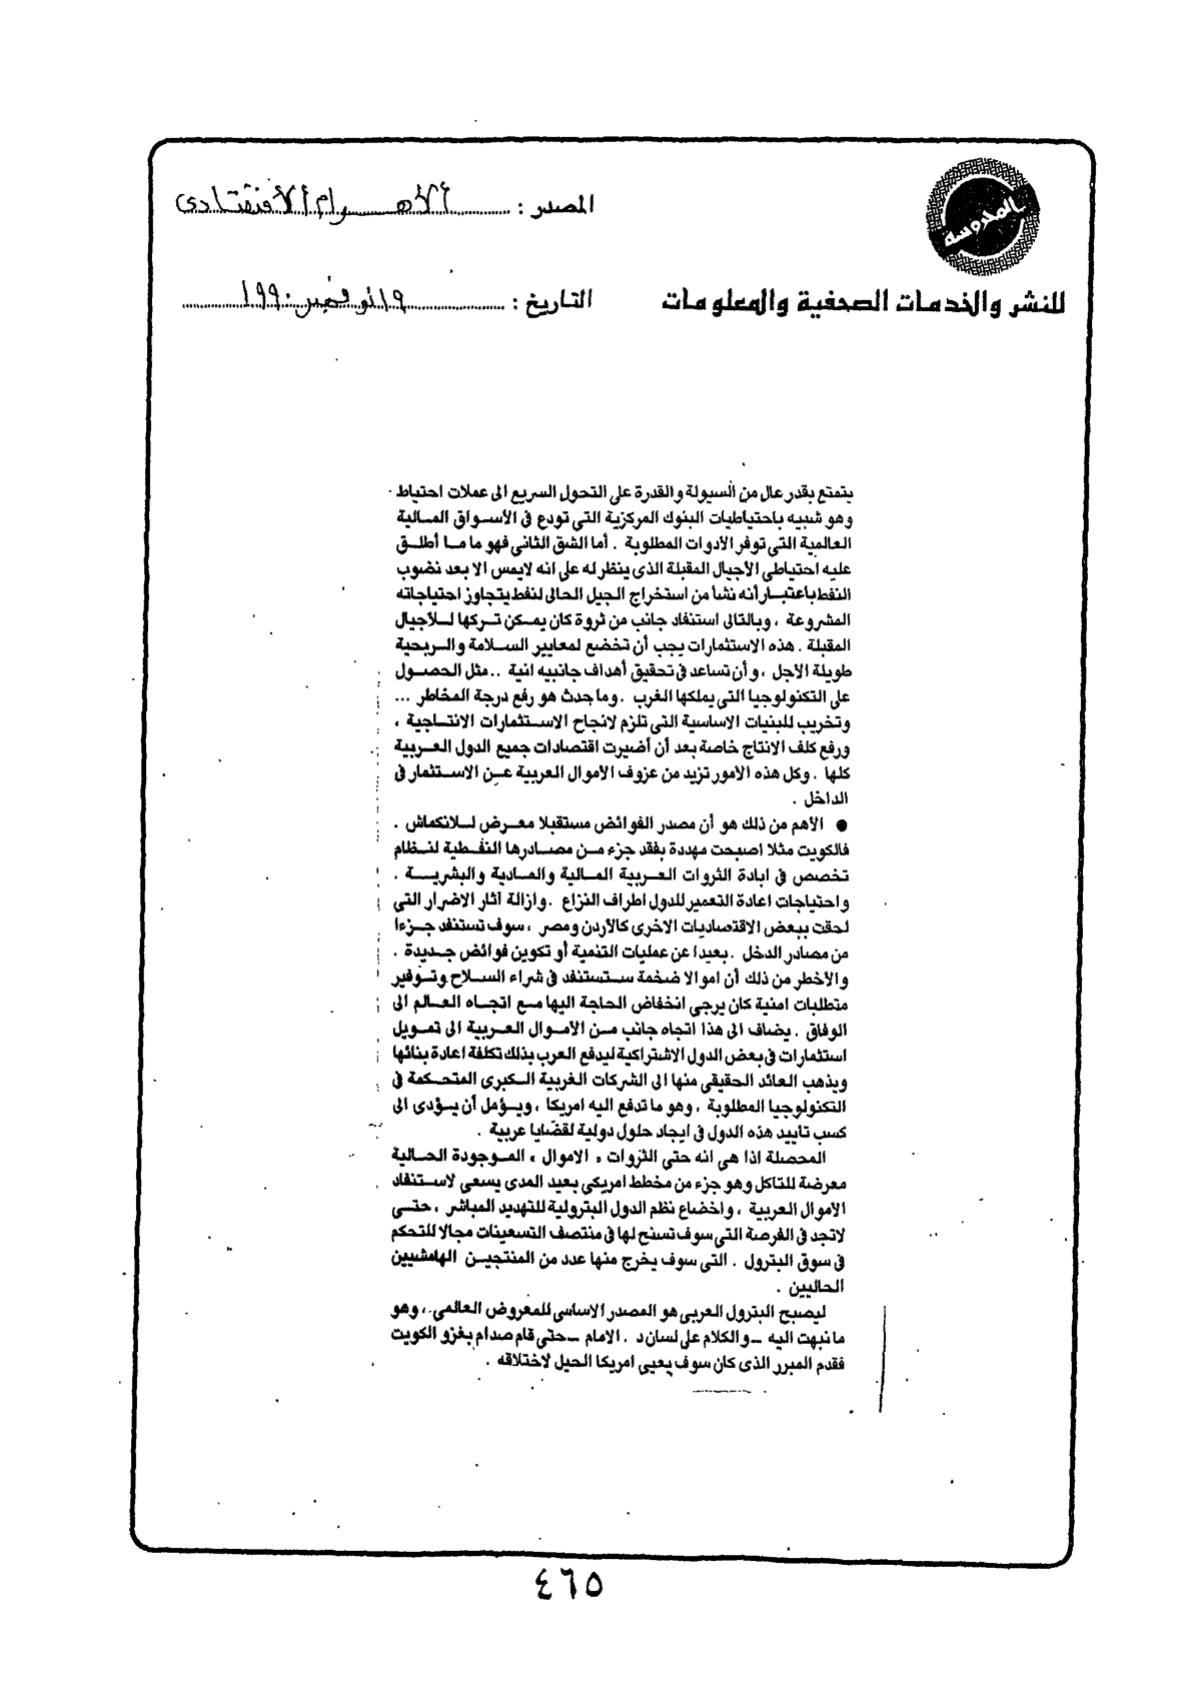 المحروسة
المصدر : الأهرام الاقتصادى
للنشر والخدمات الصحفية والمعلومات
التاريخ : ١٩ نوفمبر ١٩٩٠
يتمتع بقدر عال من السيولة والقدرة على التحول السريع الى عملات احتياط
وهو شبيه باحتياطيات البنوك المركزية التى تودع فى الأسواق المالية
العالمية التى توفر الادوات المطلوبة . أما الشق الثانى فهو ما ما أطلق
عليه احتياطى الأجيال المقبلة الذى ينظر له على انه لايمس الا بعد نضوب
النفط باعتبار أنه نشأ من استخراج الجيل الحالى لنفط يتجاوز احتياجاته
المشروعة ، وبالتالى استنفاد جانب من ثروة كان يمكن تركها للأجيال
المقبلة . هذه الاستثمارات يجب أن تخضع لمعايير السلامة والربحية
طويلة الاجل ، وأن تساعد فى تحقيق أهداف جانبيه انية .. مثل الحصول
على التكنولوجيا التى يملكها الغرب . وما حدث هو رفع درجة المخاطر ...
وتخريب للبنيات الاساسية التى تلزم لانجاح الاستثمارات الانتاجية ،
ورفع كلف الانتاج خاصة بعد أن أضيرت اقتصادات جميع الدول العربية
كلها . وكل هذه الامور تزيد من عزوف الاموال العربية عن الاستثمار فى
الداخل .
● الأهم من ذلك هو أن مصدر الفوائض مستقبلا معرض للانكماش .
فالكويت مثلا اصبحت مهددة بفقد جزء من مصادرها النفطية لنظام
تخصص فى ابادة الثروات العربية المالية والمادية والبشرية .
واحتياجات اعادة التعمير للدول اطراف النزاع . وازالة آثار الاضرار التى
لحقت ببعض الاقتصاديات الاخرى كالأردن ومصر ، سوف تستنفد جزءا
من مصادر الدخل . بعيدا عن عمليات التنمية أو تكوين فوائض جديدة .
والأخطر من ذلك أن اموالا ضخمة ستستنفد فى شراء السلاح وتوفير
متطلبات امنية كان يرجى انخفاض الحاجة اليها مع اتجاه العالم الى
الوفاق . يضاف الى هذا اتجاه جانب من الاموال العربية الى تمويل
استثمارات فى بعض الدول الاشتراكية ليدفع العرب بذلك تكلفة اعادة بنائها
ويذهب العائد الحقيقى منها الى الشركات الغربية الكبرى المتحكمة فى
التكنولوجيا المطلوبة ، وهو ما تدفع اليه امريكا ، ويؤمل أن يؤدى الى
كسب تأييد هذه الدول فى ايجاد حلول دولية لقضايا عربية .
المحصلة اذا هى انه حتى الثروات « الاموال » الموجودة الحالية
معرضة للتآكل وهو جزء من مخطط امريكى بعيد المدى يسعى لاستنفاد
الاموال العربية ، واخضاع نظم الدول البترولية للتهديد المباشر ، حتى
لاتجد فى الفرصة التى سوف تسنح لها فى منتصف التسعينات مجالا للتحكم
فى سوق البترول . التى سوف يخرج منها عدد من المنتجين الهامشيين
الحاليين .
ليصبح البترول العربى هو المصدر الاساسى للمعروض العالمى ، وهو
ما نبهت اليه - والكلام على لسان د . الامام - حتى قام صدام بغزو الكويت
فقدم المبرر الذى كان سوف يعيى امريكا الحيل لاختلاقه .
٤٦٥